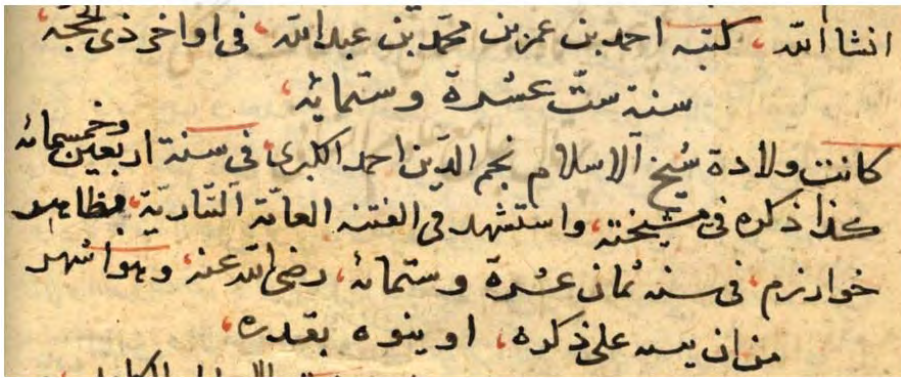 انشا الله، كتبه احمد بن عمر بن محمد بن عبد الله، فى اواخر ذى الحجه
سنة ستّ عشرة وستمايه،
كانت ولادة شيخ الاسلام نجم الدّين احمد الكبرى، فى سنة اربعين وخمسمائه
كذا ذكره فى مشيخته، واستشهد فى الفتنه العامّة التتاريّة، بظاهر
خوارزم، فى سنه ثمان عشرة وستمائة، رضى الله عنه، وهو اشهر
من ان ينبه على ذكره، او ينوه بقدره،